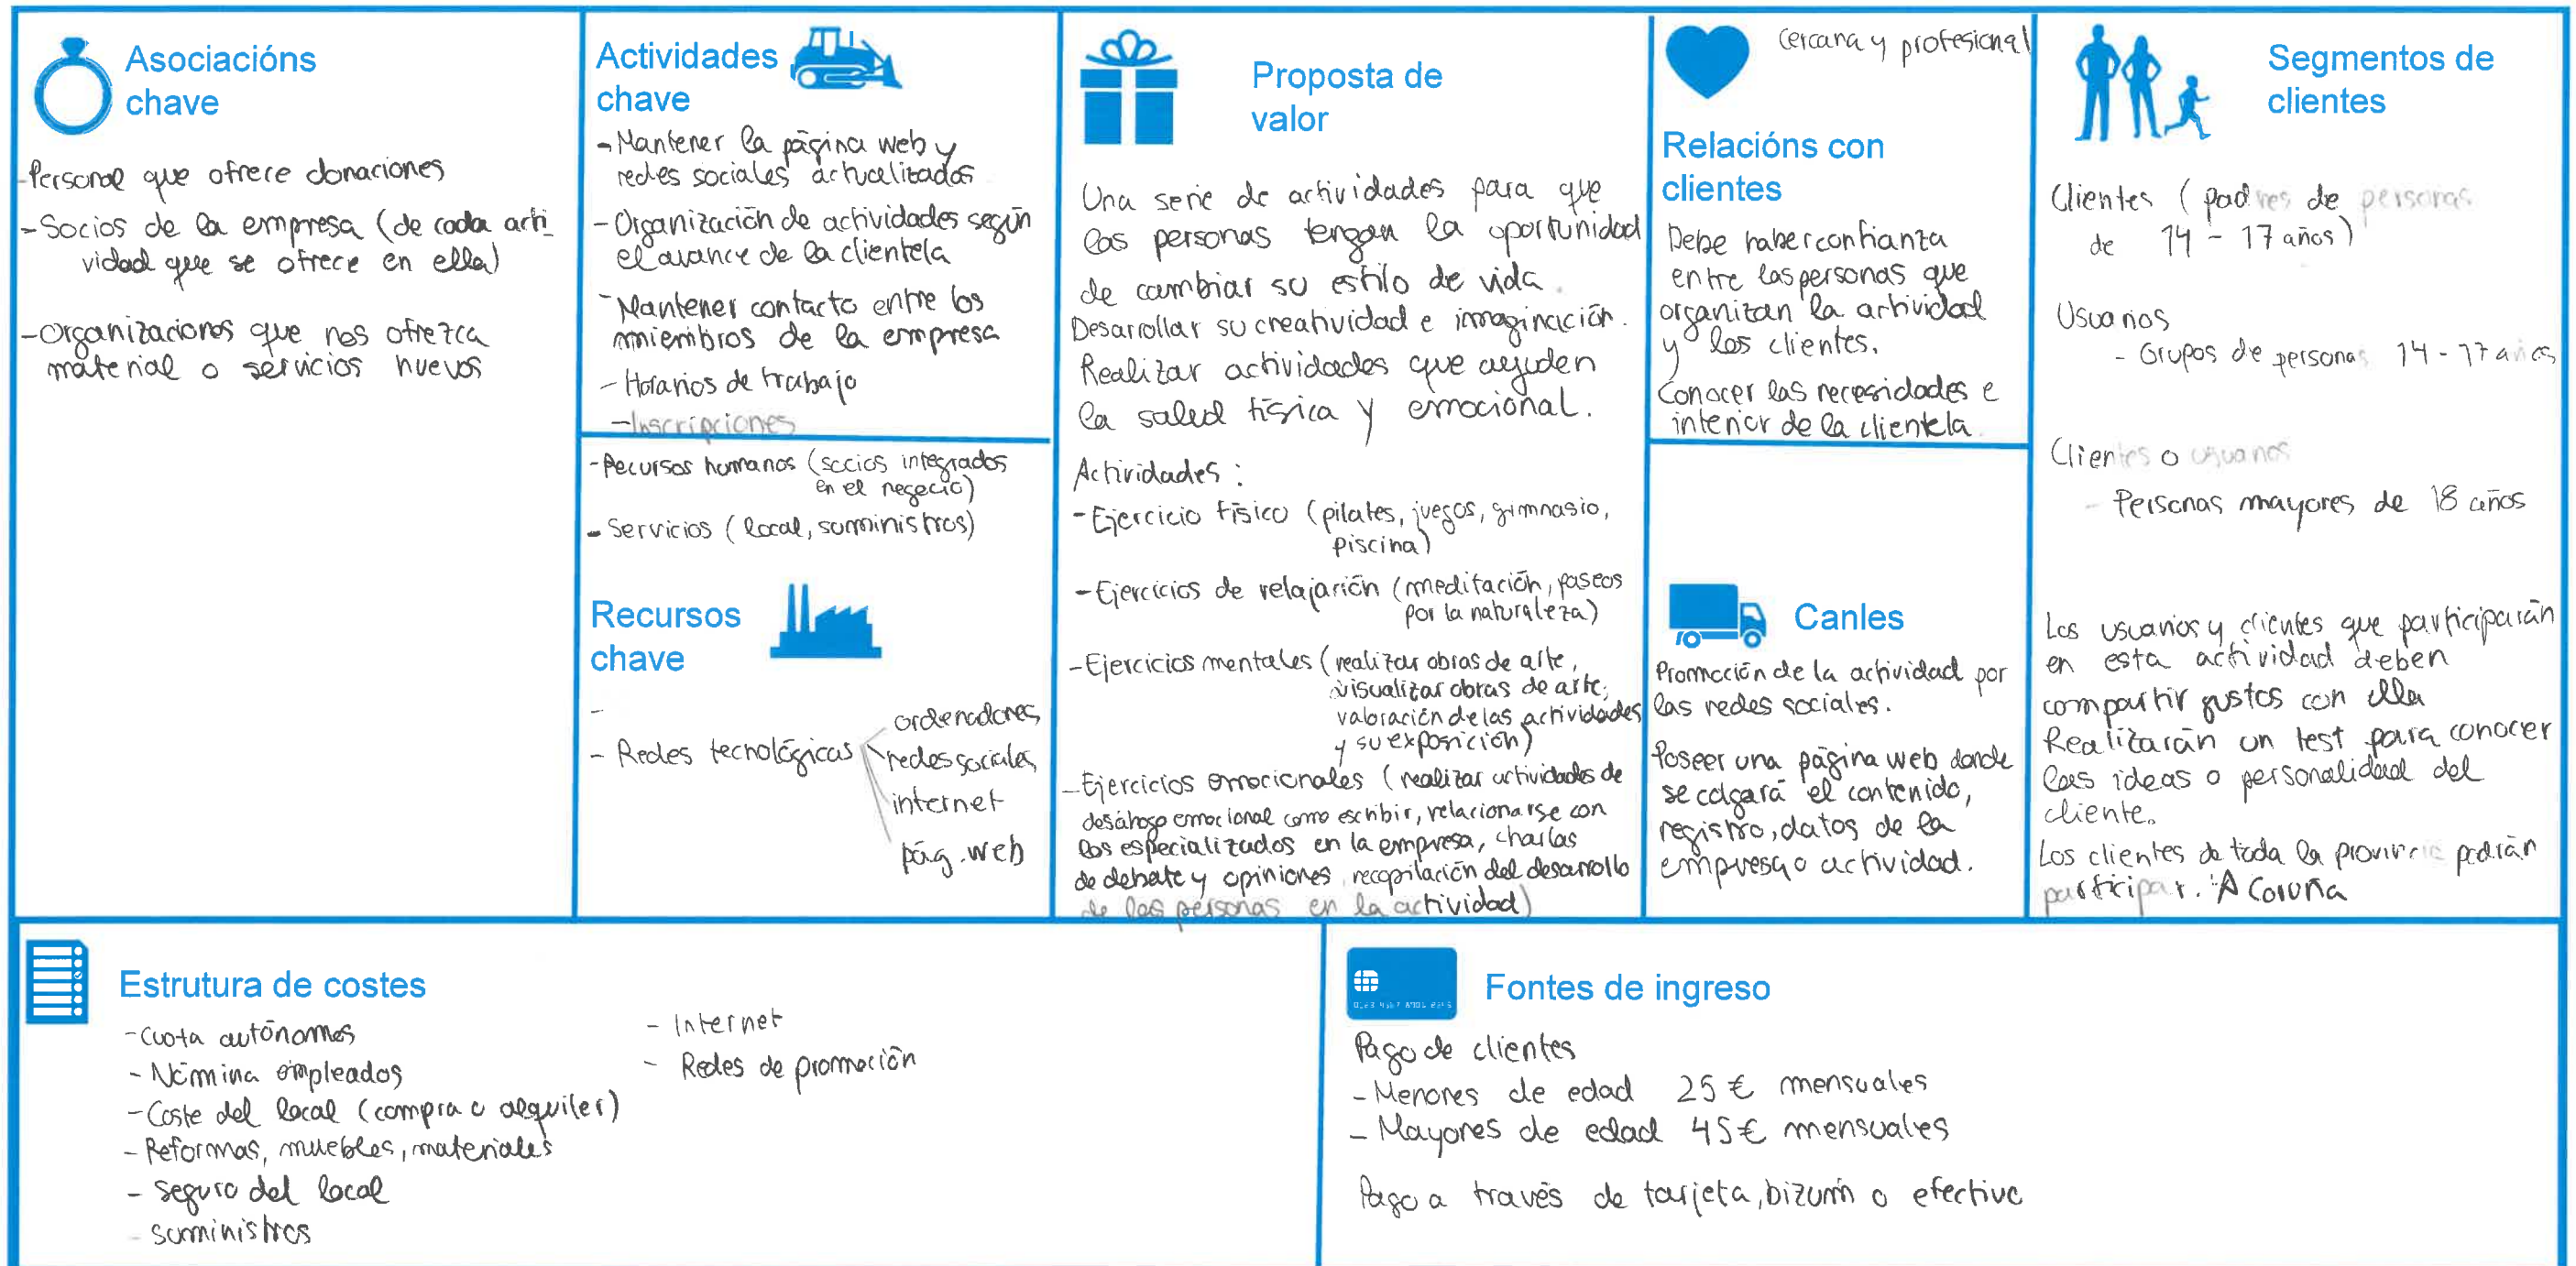 Asociacións
chave
-Personal que ofrece donaciones
-Socios de la empresa (de cada acti_
vidad que se ofrece en ella)
-Organizaciones que nos ofrezca
material o servicios nuevos
Actividades
chave
-Mantener la página web y
redes sociales actualizados
-Organización de actividades según
el avance de la clientela
-Mantener contacto entre los
miembros de la empresa
-Horarios de trabajo
-Inscripciones
-Recursos humanos (socios integrados
en el negocio)
-Servicios (local, suministros)
Recursos
chave
-
- Redes tecnológicas
ordenadores
redes sociales
internet
pág. web
Proposta de
valor
Una serie de actividades para que
las personas tengan la oportunidad
de cambiar su estilo de vida.
Desarollar su creatividad e imaginación.
Realizar actividades que ayuden
la salud física y emocional.
Actividades:
-Ejercicio físico (pilates, juegos, gimnasio,
piscina)
-Ejercicios de relajación (meditación, paseos
por la naturaleza)
-Ejercicios mentales (realizar obras de arte,
visualizar obras de arte,
valoración de las actividades
y su exposición)
-Ejercicios emocionales (realizar actividades de
desahogo emocional como escribir, relacionarse con
los especializados en la empresa, charlas
de debate y opiniones, recopilación del desarrollo
de las personas en la actividad)
cercana y profesional
Relacións con
clientes
Debe haber confianza
entre las personas que
organizan la actividad
y los clientes.
Conocer las necesidades e
interior de la clientela.
Canles
Promoción de la actividad por
las redes sociales.
Poseer una página web donde
se colgará el contenido,
registro, datos de la
empresa o actividad.
Segmentos de
clientes
Clientes (padres de personas
de 14 - 17 años)
Usuarios
- Grupos de personas 14 - 17 años
Clientes o usuarios
- Personas mayores de 18 años
Los usuarios y clientes que participarán
en esta actividad deben
compartir gustos con ella
Realizarán un test para conocer
las ideas o personalidad del
cliente.
Los clientes de toda la provincia podrán
participar. A Coruña
Estrutura de costes
-Cuota autónomos
- Nómina empleados
-Coste del local (compra o alquiler)
- Reformas, muebles, materiales
- Seguro del local
- suministros
- Internet
- Redes de promoción
Fontes de ingreso
Pago de clientes
-Menores de edad 25 € mensuales
- Mayores de edad 45€ mensuales
Pago a través de tarjeta, bizum o efectivo